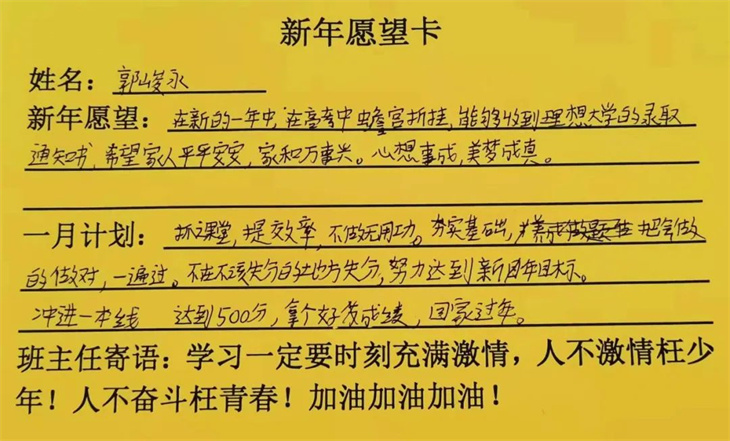 新年愿望卡
姓名：郭峻永
新年愿望：在新的一年中，在高考中蟾宫折挂，能够收到理想大学的录取
通知书，希望家人平平安安，家和万事兴。心想事成，美梦成真。
一月计划：抓课堂，提效率，不做无用功。夯实基础，养成做题 把会做
的做对，一遍过。不在不该失分的地方失分，努力达到新周年目标。
冲进一本线 达到500分，拿个好成绩，回家过年。
班主任寄语：学习一定要时刻充满激情，人不激情枉少
年！人不奋斗枉青春！加油加油加油！